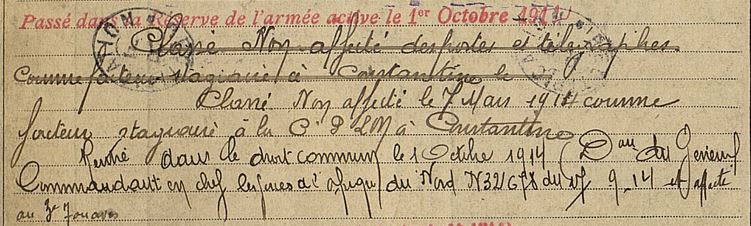 Passé dans la Réserve de l'armée active le 1er Octobre 1911
Classé Non affecté des postes et télégraphes
Comme facteur stagiaire à Constantine le
Classé Non affecté le 7 Mars 1914 comme
facteur stagiaire à la Cie P L M à Constantine
Rentré dans le droit commun le 1 Octobre 1914 (Don du Général
Commandant en chef les forces de l'afrique du Nord N 32678 du 27 9_14 et affecté
au 3e Zouaves